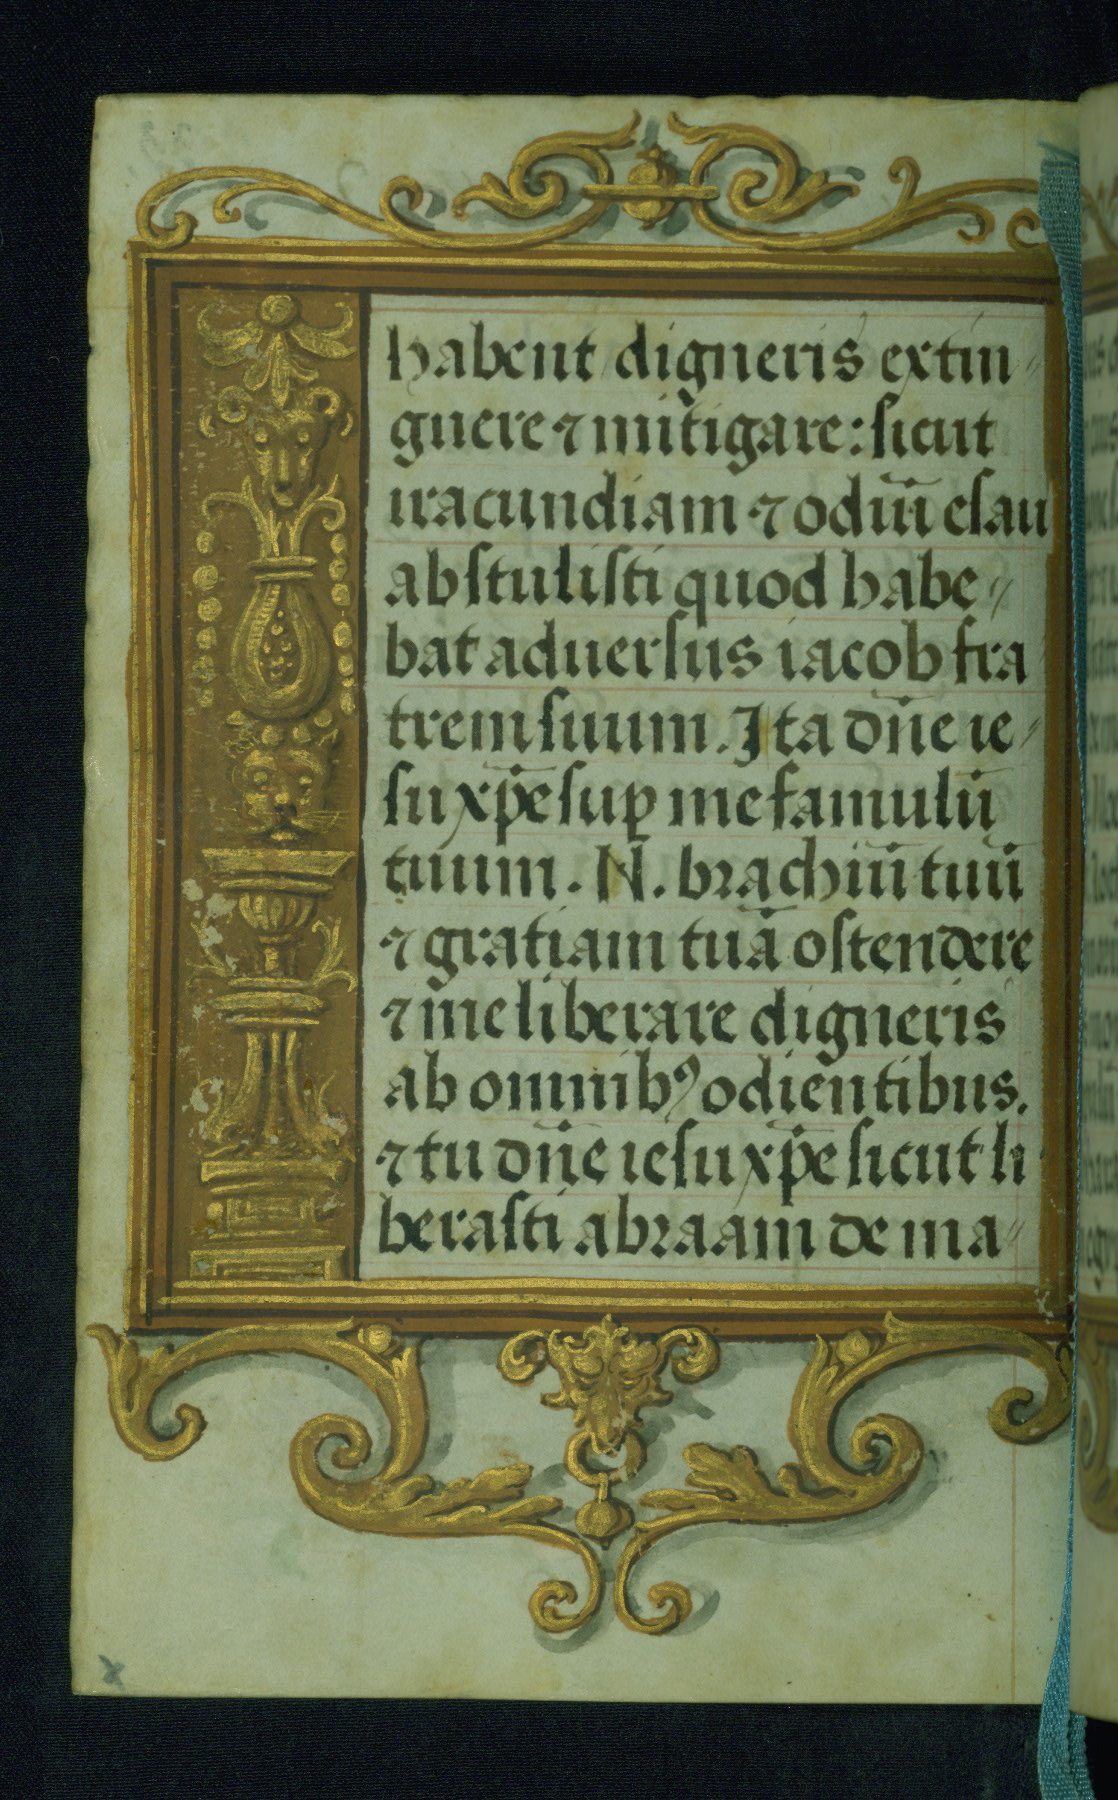 habent digneris extin
guere ⁊ mitigare: sicut
iracundiam ⁊ odiū esau
abstulisti quod habe
bat aduersus iacob fra
trem suum. Ita dn̄e ie
su xp̄e suꝑ me famulū
tuum. N. brachiū tuū
⁊ gratiam tuā ostendere
⁊ me liberare digneris
ab omnibꝰ odientibus.
⁊ tu dn̄e iesu xp̄e sicut li
berasti abraam de ma